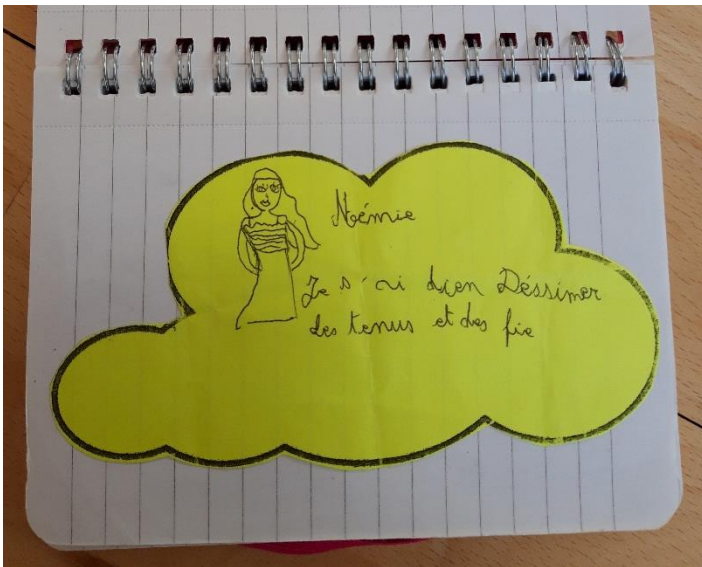 Némie
Je s'ai bien Déssiner
des tenus et des fie